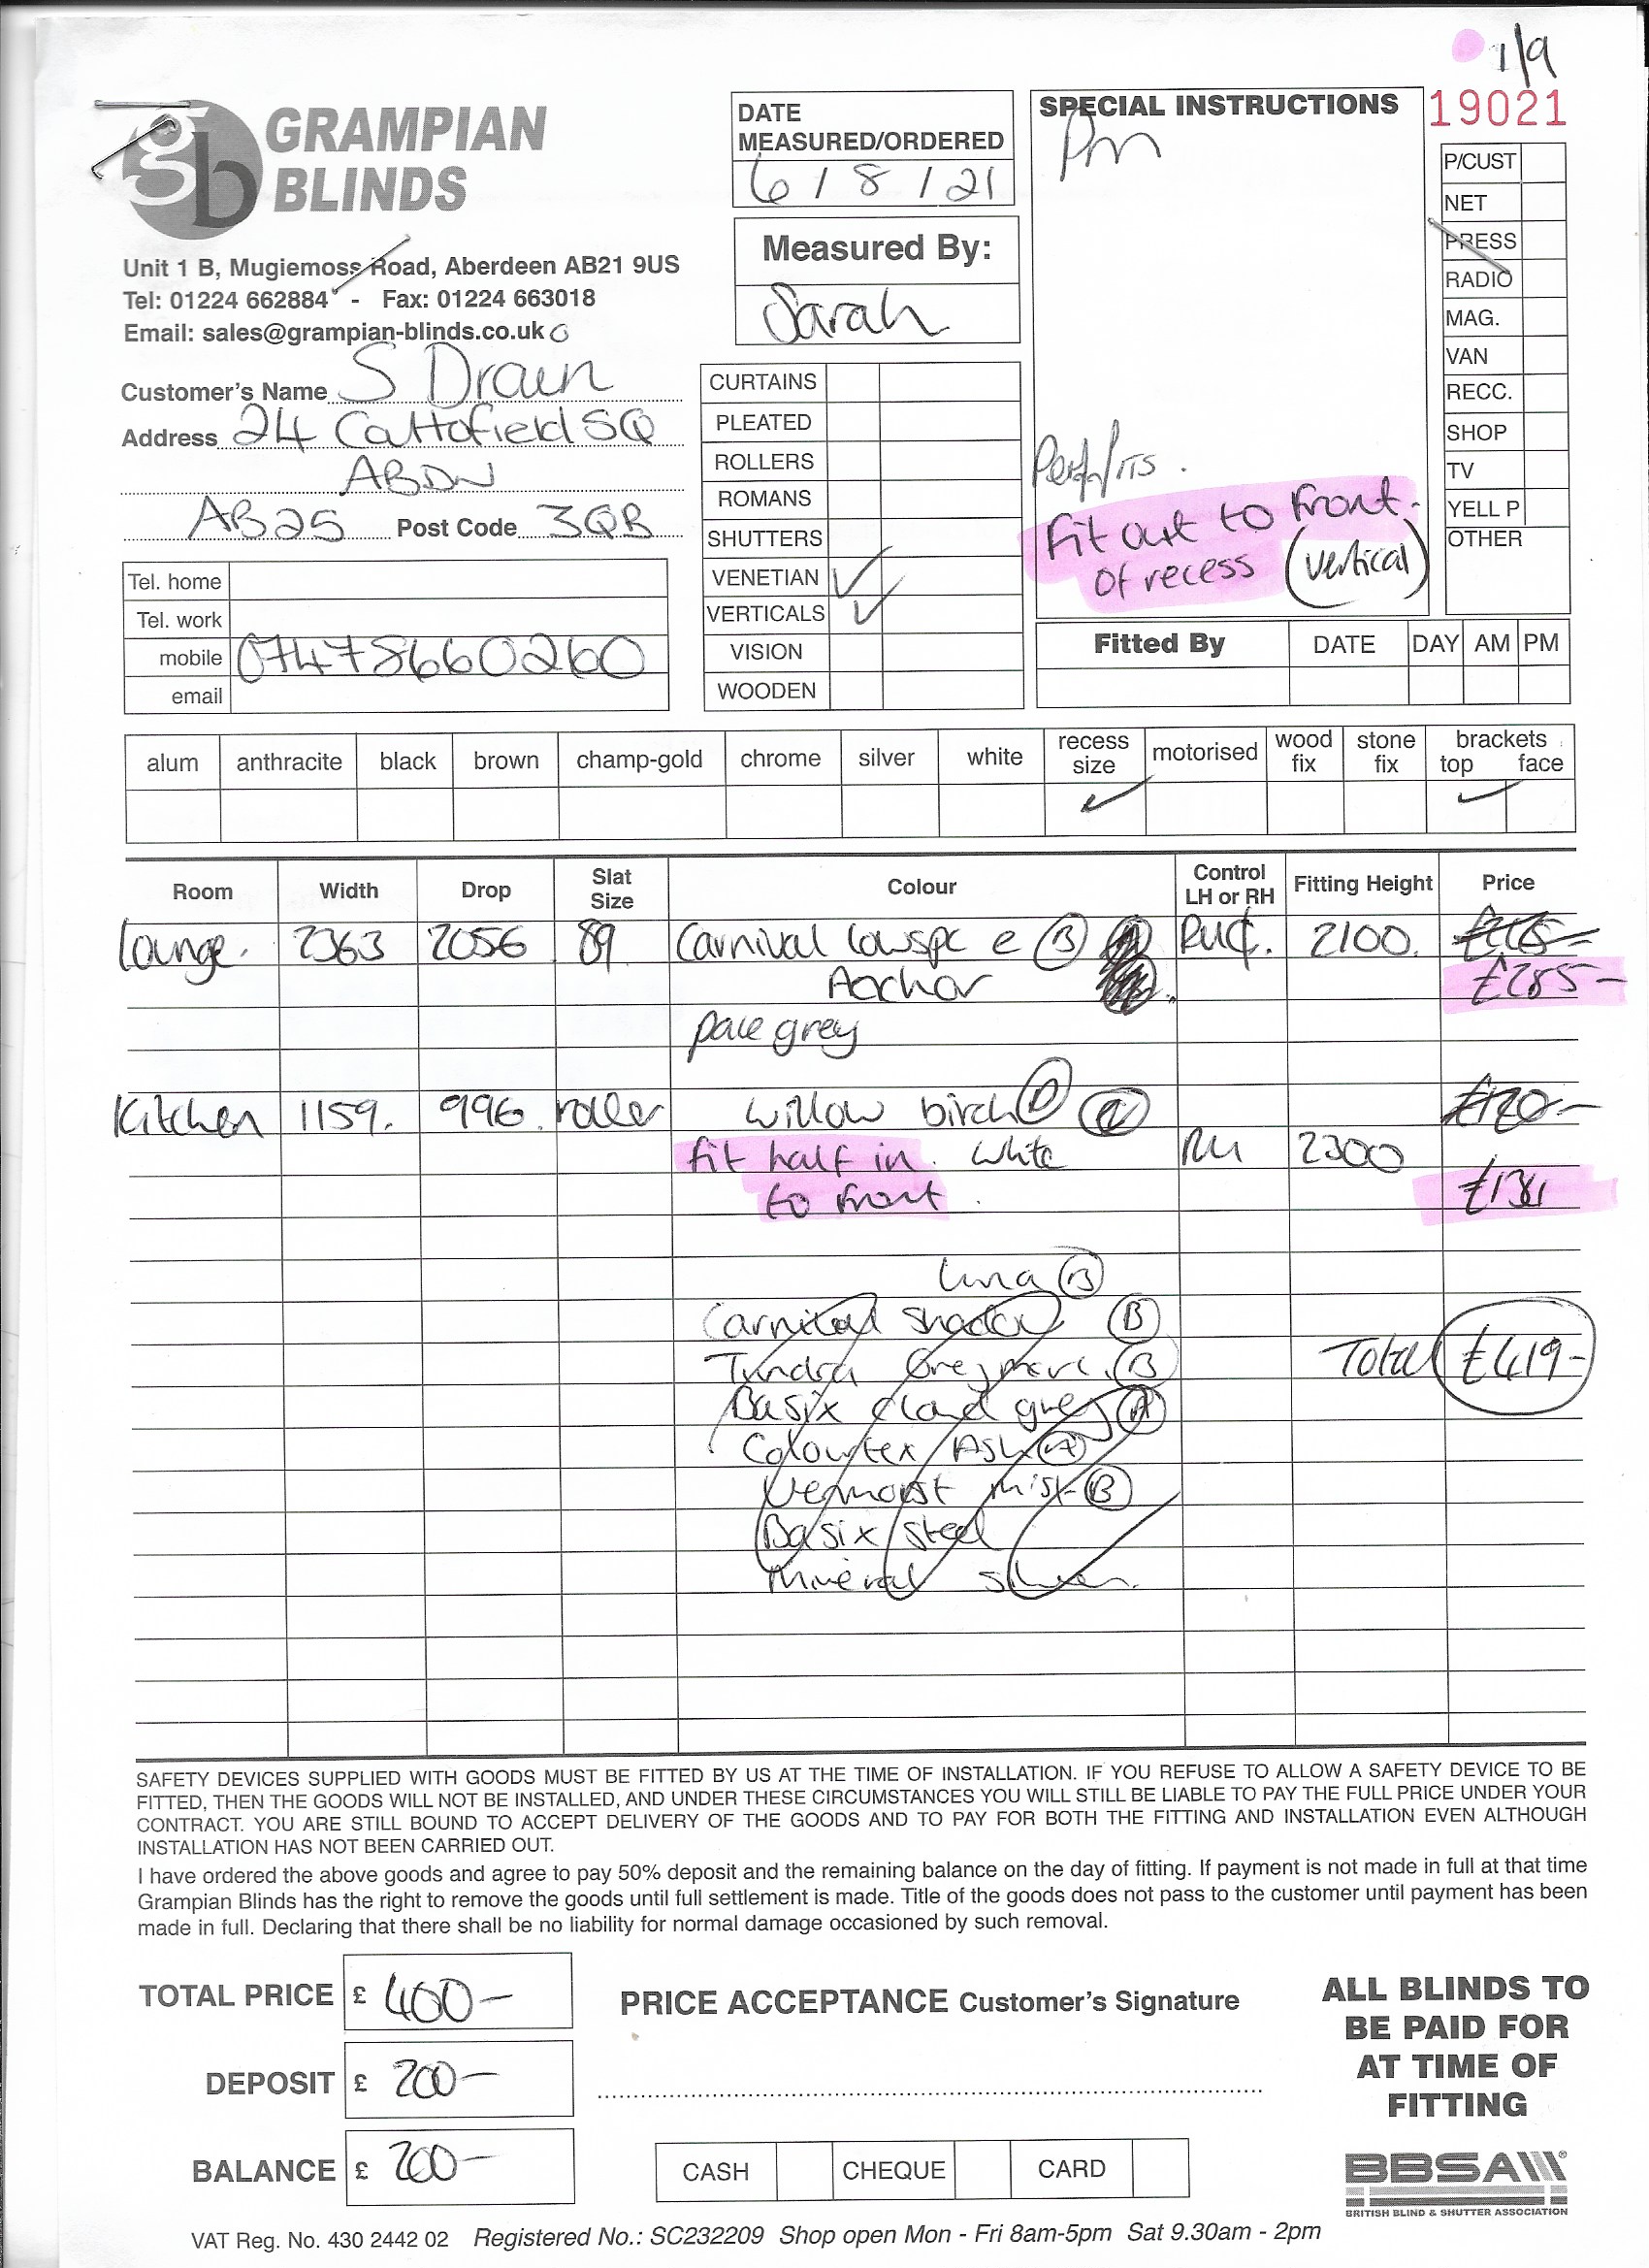 1/9
GRAMPIAN
BLINDS
Unit 1 B, Mugiemoss Road, Aberdeen AB21 9US
Tel: 01224 662884 - Fax: 01224 663018
Email: sales@grampian-blinds.co.uk
Customer's Name S Drain
Address 24 Cattofield SQ
ABDN
AB25 Post Code 3QB
Tel. home
Tel. work
mobile 07478660260
email
DATE
MEASURED/ORDERED
6/8/21
Measured By:
Sarah
CURTAINS
PLEATED
ROLLERS
ROMANS
SHUTTERS
VENETIAN ✓
VERTICALS ✓
VISION
WOODEN
SPECIAL INSTRUCTIONS
Pm
Fit out to front
of recess (vertical)
19021
P/CUST
NET
PRESS
RADIO
MAG.
VAN
RECC.
SHOP
TV
YELL P
OTHER
Fitted By DATE DAY AM PM
alum anthracite black brown champ-gold chrome silver white recess size motorised wood fix stone fix brackets top face
✓ ✓
Room Width Drop Slat Size Colour Control LH or RH Fitting Height Price
Lounge. 2363 2056 89 Carnival lowspc e (B) 2100.
Aachor £285-
pale grey
Kitchen 1159. 996. roller willow birch £120-
fit half in. white RH 2300
to front. £134
Luna (B)
Carnival shadow (B)
Tundra Greymarl (B)
Basix cloud grey (A)
Colourtex Ash (A)
Vermont mist (B)
Basix steel
Mineral silver.
Total £419-
SAFETY DEVICES SUPPLIED WITH GOODS MUST BE FITTED BY US AT THE TIME OF INSTALLATION. IF YOU REFUSE TO ALLOW A SAFETY DEVICE TO BE
FITTED, THEN THE GOODS WILL NOT BE INSTALLED, AND UNDER THESE CIRCUMSTANCES YOU WILL STILL BE LIABLE TO PAY THE FULL PRICE UNDER YOUR
CONTRACT. YOU ARE STILL BOUND TO ACCEPT DELIVERY OF THE GOODS AND TO PAY FOR BOTH THE FITTING AND INSTALLATION EVEN ALTHOUGH
INSTALLATION HAS NOT BEEN CARRIED OUT.
I have ordered the above goods and agree to pay 50% deposit and the remaining balance on the day of fitting. If payment is not made in full at that time
Grampian Blinds has the right to remove the goods until full settlement is made. Title of the goods does not pass to the customer until payment has been
made in full. Declaring that there shall be no liability for normal damage occasioned by such removal.
TOTAL PRICE £ 400-
DEPOSIT £ 200-
BALANCE £ 200-
PRICE ACCEPTANCE Customer's Signature
CASH CHEQUE CARD
ALL BLINDS TO
BE PAID FOR
AT TIME OF
FITTING
BBSA
BRITISH BLIND & SHUTTER ASSOCIATION
VAT Reg. No. 430 2442 02 Registered No.: SC232209 Shop open Mon - Fri 8am-5pm Sat 9.30am - 2pm